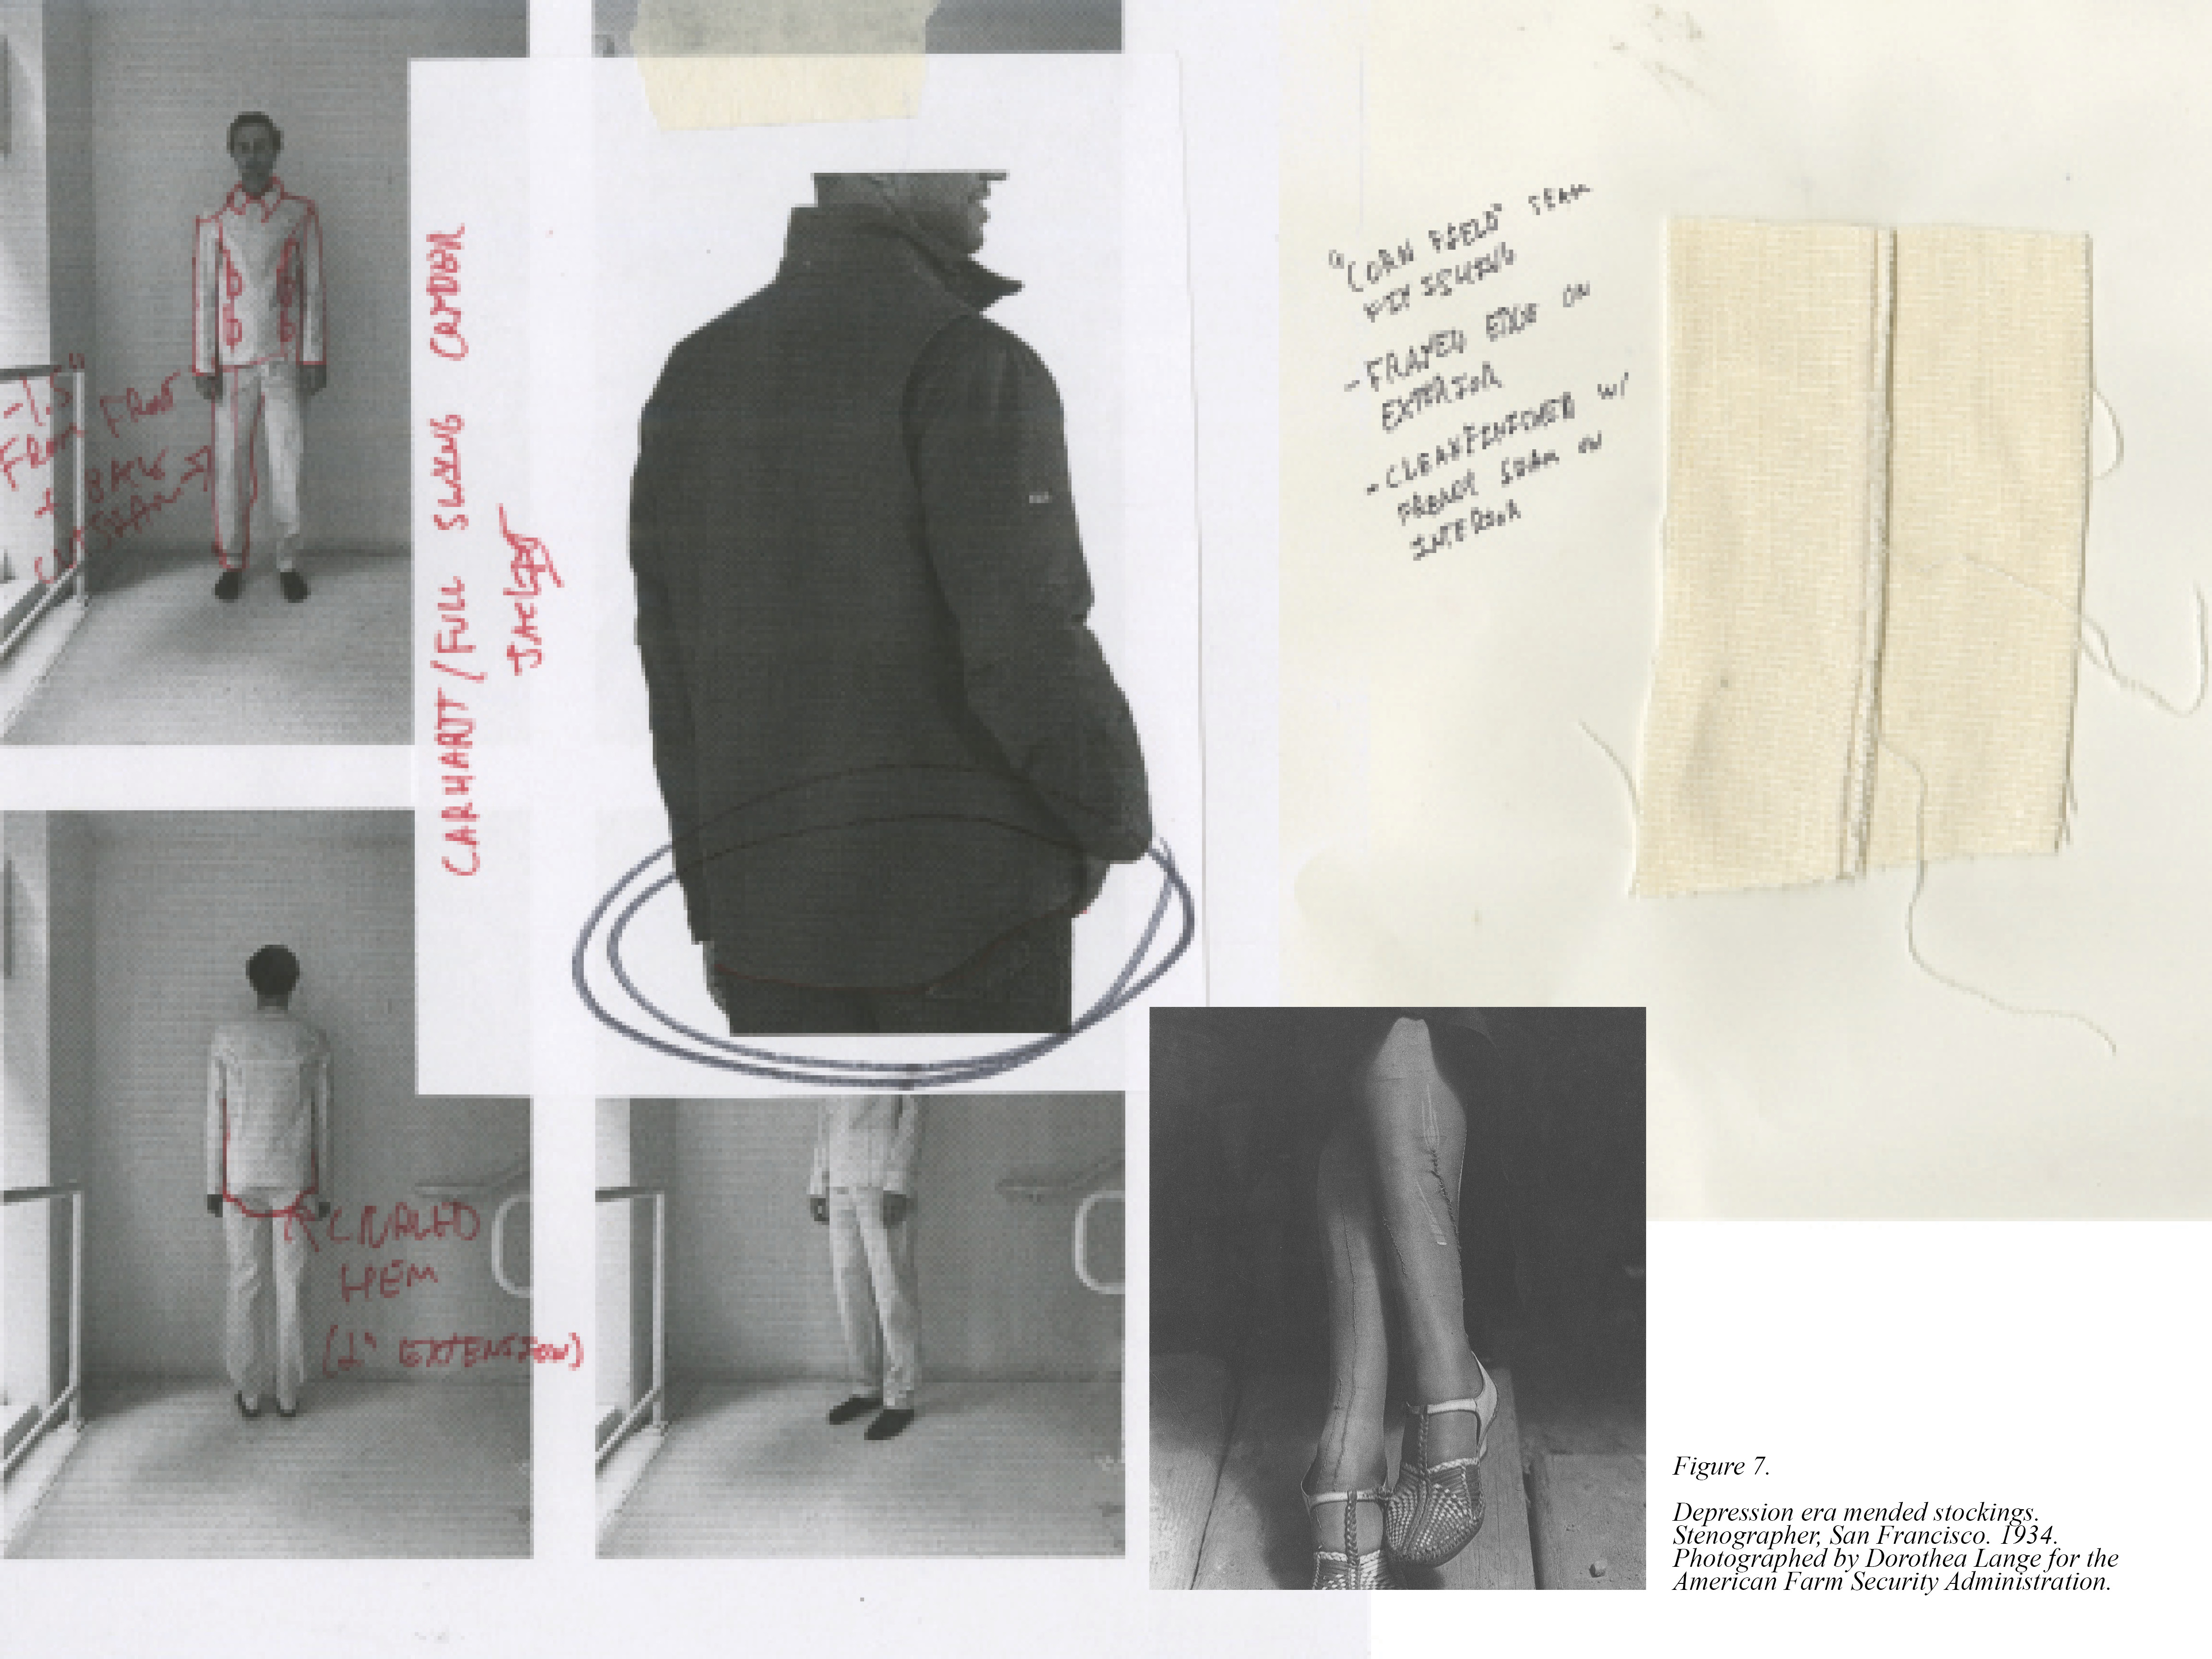 -1.5"
FROM FRONT
+ BACK
CARHARTT/FULL SWING
JACKET
"CORN FIELD" SEAM
FINISHING
-FRAYED EDGE ON
EXTERIOR
-CLEAN FINISHED W/
FRENCH SEAM ON
INTERIOR
HEM
(1" EXTENSION)
Figure 7.
Depression era mended stockings.
Stenographer, San Francisco. 1934.
Photographed by Dorothea Lange for the
American Farm Security Administration.